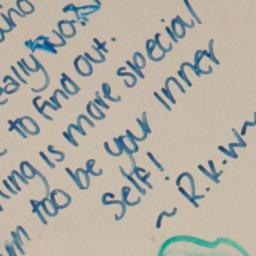 who
really works
to find out.
is more special
too be your inner
self!
~ R.K.W~